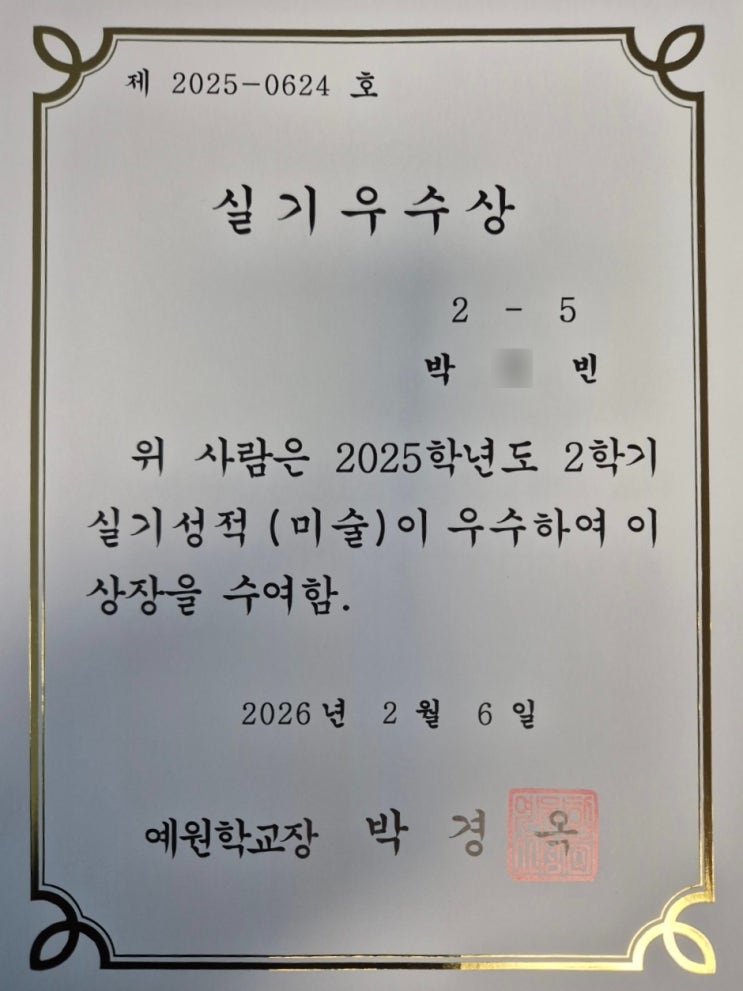 제 2025-0624 호
실기우수상
2 - 5
박 빈
위 사람은 2025학년도 2학기
실기성적(미술)이 우수하여 이
상장을 수여함.
2026년 2월 6일
예원학교장 박 경 옥